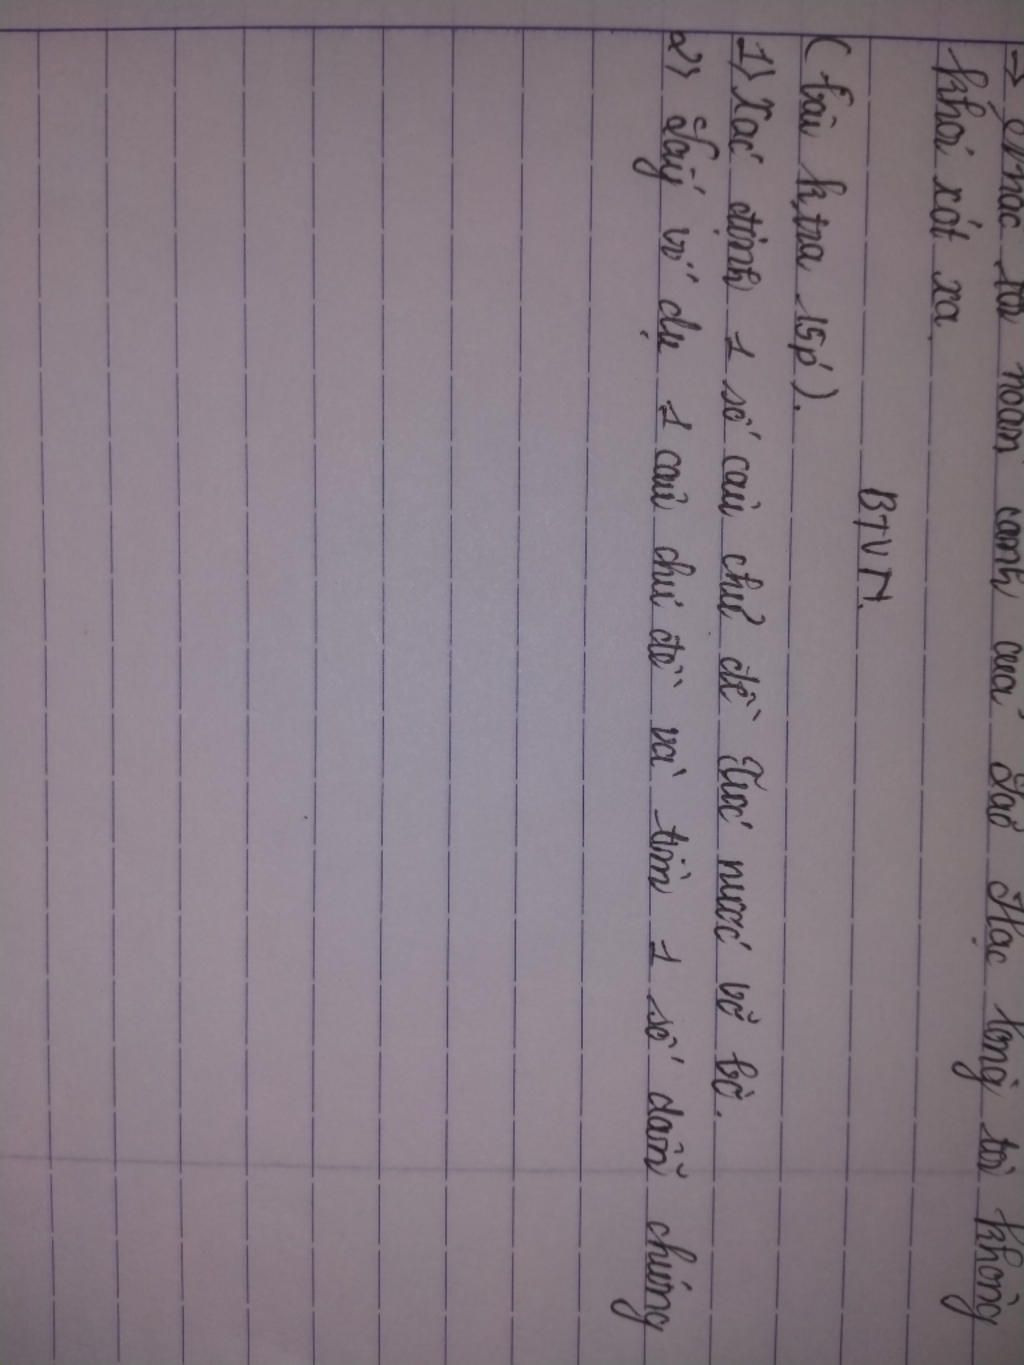 → Nhắc tới hoàn cảnh của Lão Hạc lòng tôi không
khỏi xót xa
BTVN.
( bài ktra 15p').
1> Xác định 1 số câu chủ đề Tức nước vỡ bờ.
2> Lấy ví dụ 1 câu chủ đề và tìm 1 số dẫn chứng